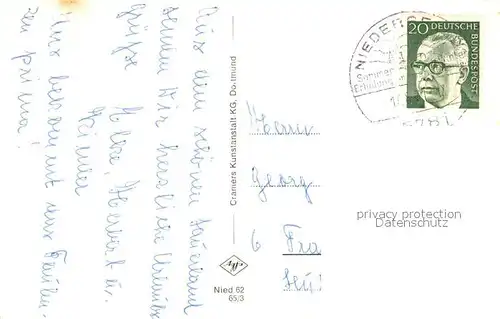 Aus dem schönen Sauerland
senden Wir herzliche Urlaubs
Grüße
Ilse, Herbert u.
Uns bekommt das Faulen-
zen prima!
Cramers Kunstanstalt KG, Dortmund
Nied 62
65/3
Herrn
Georg
6 Fra
NIEDER
Sommer
Erholung
5781
20 DEUTSCHE
BUNDESPOST
privacy protection
Datenschutz